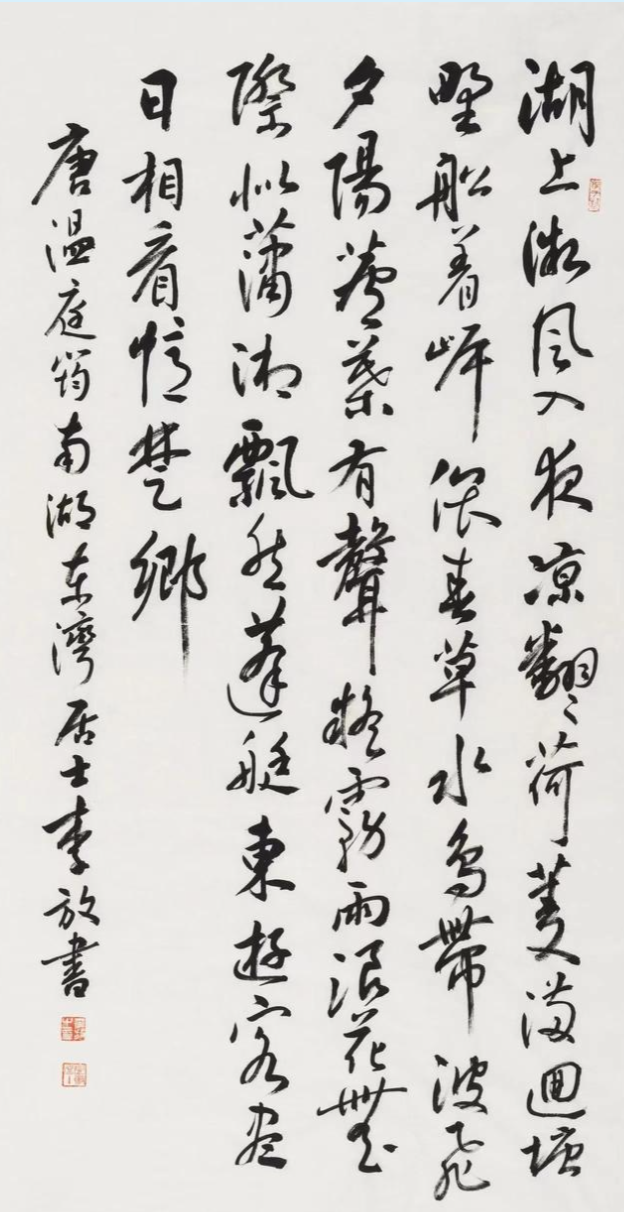 湖上微風入夜涼翻々荷菱滿迴塘
野船着岸偎春草水鳥帶波飛
夕陽蘆葉有聲疑霧雨浪花無
際似瀟湘飄然蓬艇東遊客盡
日相看憶楚鄉
唐温庭筠南湖東灣居士李放書